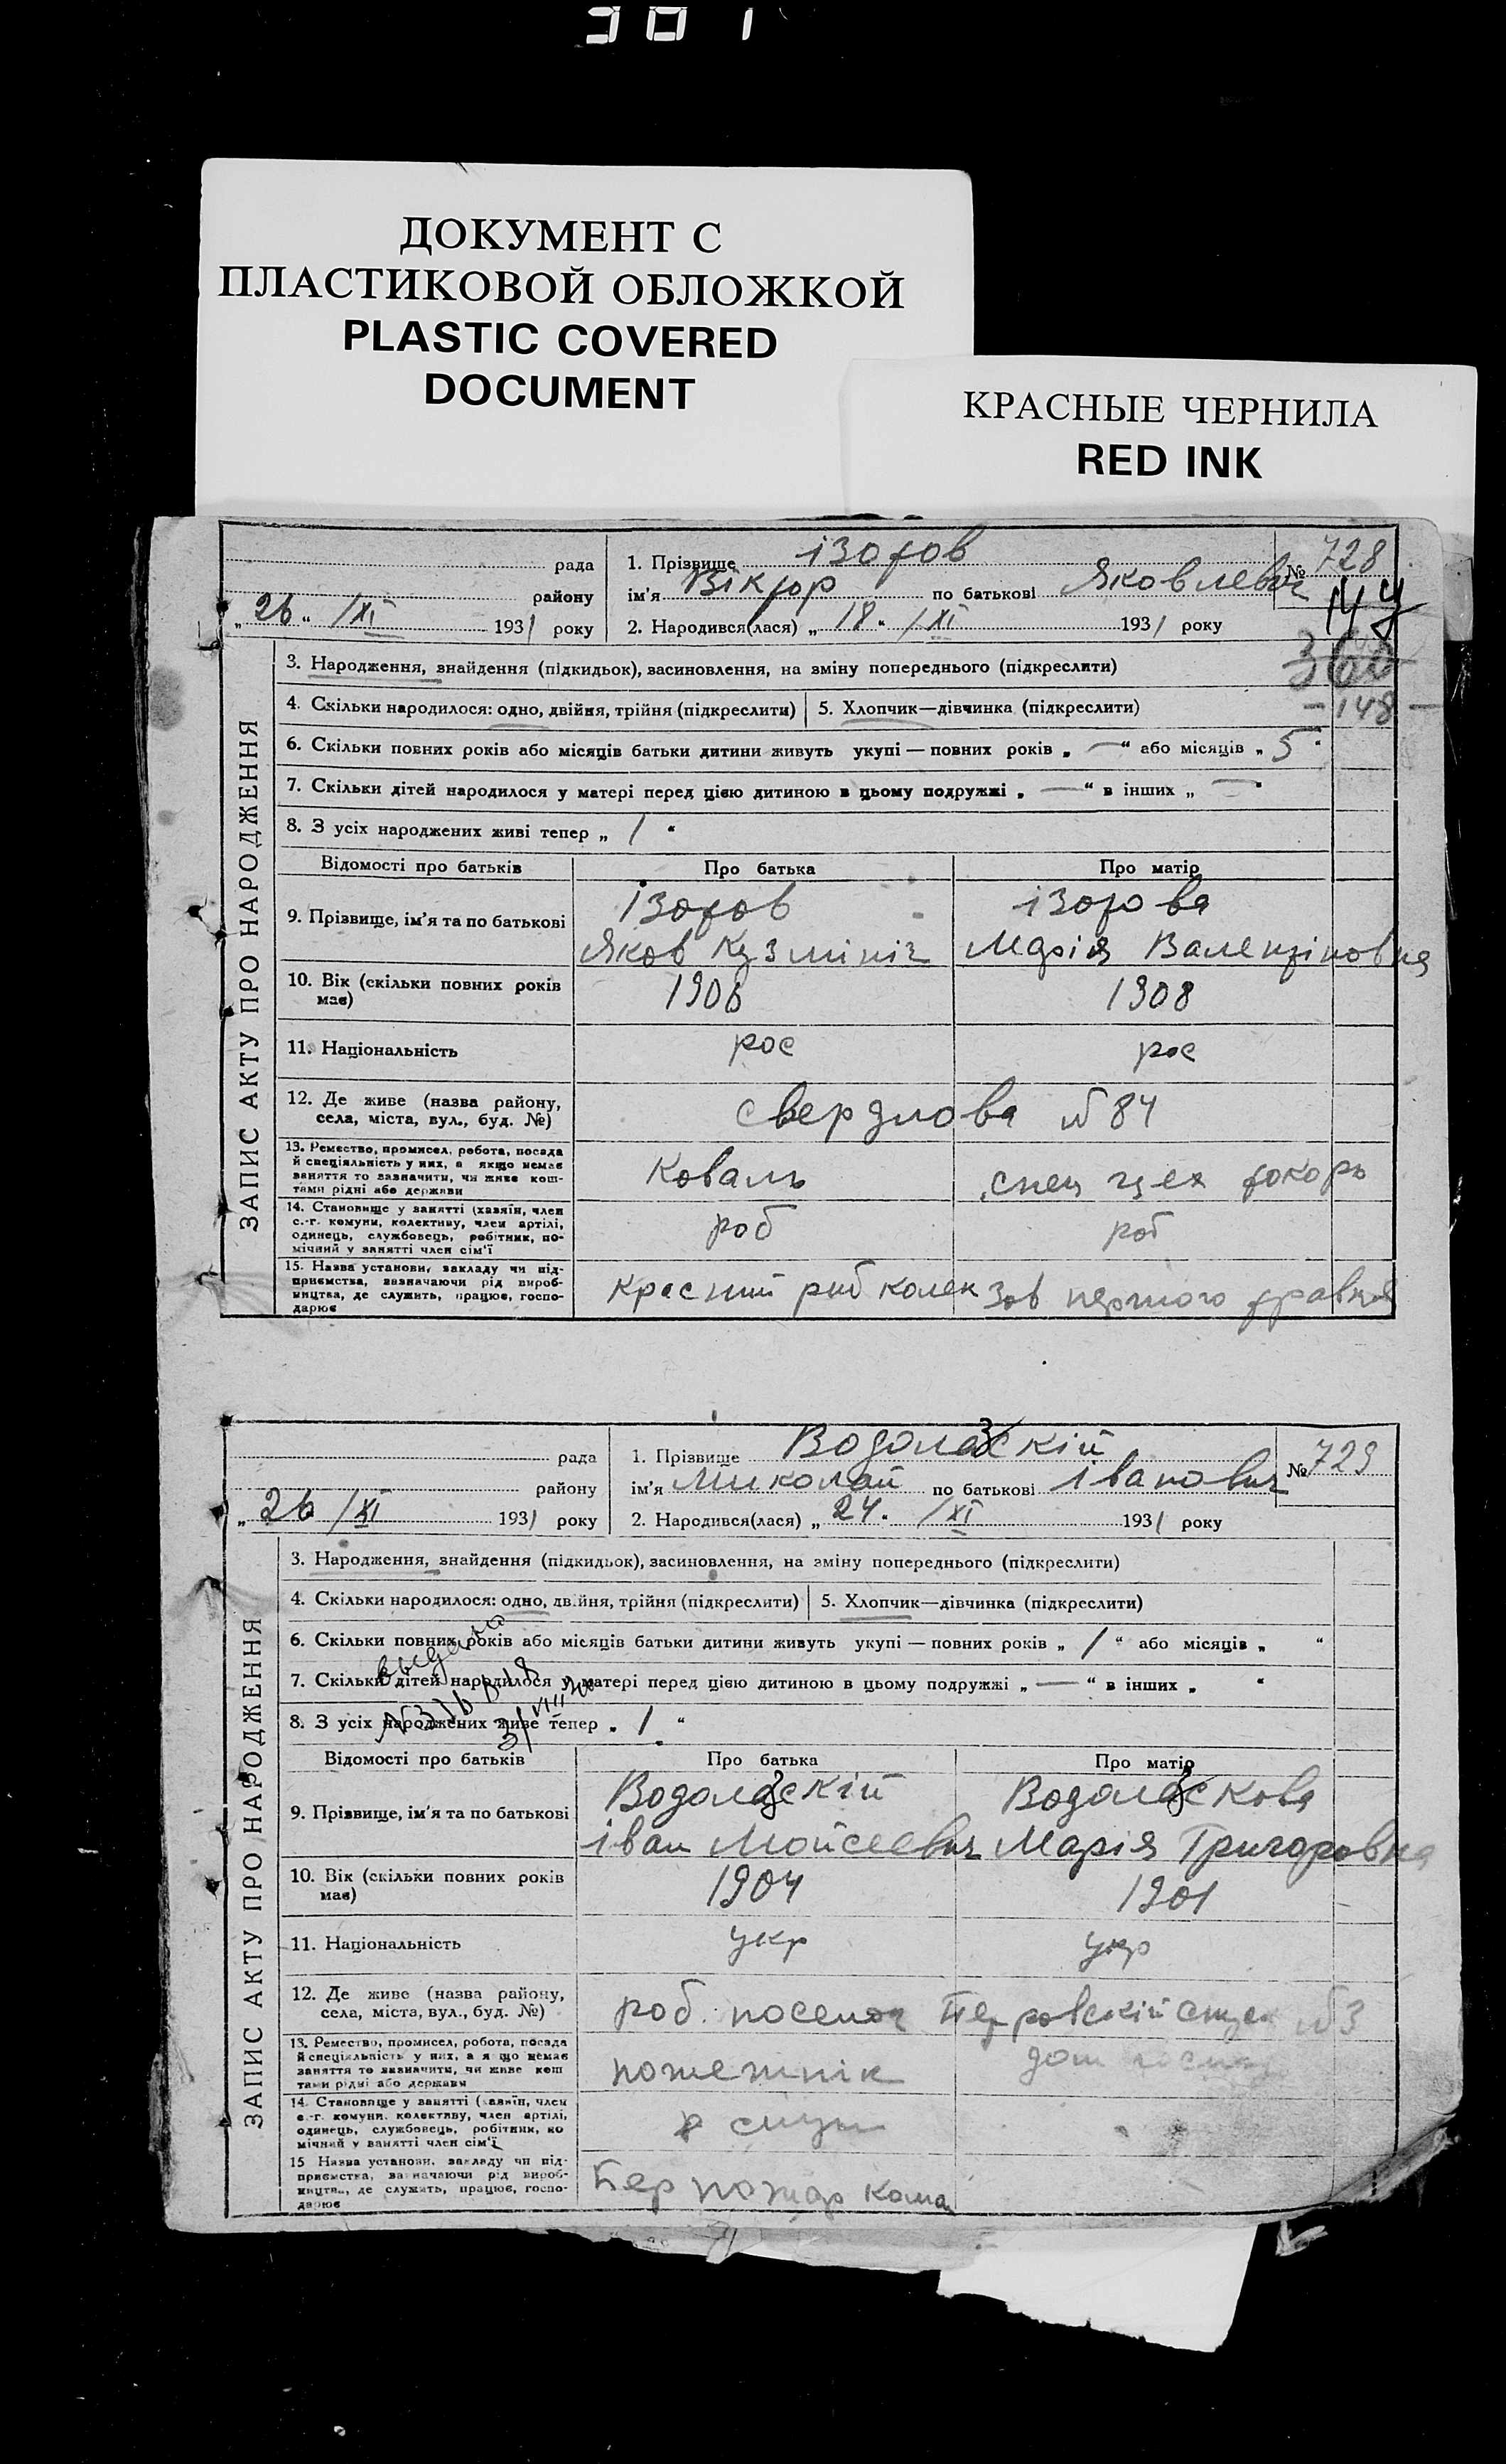 301
ДОКУМЕНТ С
ПЛАСТИКОВОЙ ОБЛОЖКОЙ
PLASTIC COVERED
DOCUMENT
КРАСНЫЕ ЧЕРНИЛА
RED INK
ЗАПИС АКТУ ПРО НАРОДЖЕННЯ
рада
району
„ 26 “ /XI 1931 року
1. Прізвище ізотов
ім'я Віктор по батькові Яковлевич
2. Народився(лася) „ 18 “ /XI 1931 року
№ 728
144
360
- 148 -
3. Народження, знайдення (підкидьок), засиновлення, на зміну попереднього (підкреслити)
4. Скільки народилося: одно, двійня, трійня (підкреслити) 5. Хлопчик—дівчинка (підкреслити)
6. Скільки повних років або місяців батьки дитини живуть укупі — повних років „ — “ або місяців „ 5 “
7. Скільки дітей народилося у матері перед цією дитиною в цьому подружжі „ — “ в інших „ — “
8. З усіх народжених живі тепер „ 1 “
Відомості про батьків Про батька Про матір
9. Прізвище, ім'я та по батькові
Ізотов ізотова
Яков Кузмініч Марія Валентіновна
10. Вік (скільки повних років має) 1906 1908
11. Національність рос рос
12. Де живе (назва району, села, міста, вул., буд. №) свердлова №84
13. Ремество, промисел, робота, посада й спеціяльність у них, а якщо немає заняття то зазначити, чи живе коштами рідні або держави
Коваль спец цех токорь
14. Становище у занятті (хазяїн, член с.-г. комуни, колективу, член артілі, одинець, службовець, робітник, помічний у занятті член сім'ї
роб роб
15. Назва установи, закладу чи підприємства, зазначаючи рід виробництва, де служить, працює, господарює
Красний риб колек Зав першого травня
ЗАПИС АКТУ ПРО НАРОДЖЕННЯ
рада
району
„ 26 /XI 1931 року
1. Прізвище Водолазскій
ім'я Миколай по батькові Іванович
2. Народився(лася) „ 24. /XI 1931 року
№ 729
3. Народження, знайдення (підкидьок), засиновлення, на зміну попереднього (підкреслити)
4. Скільки народилося: одно, двійня, трійня (підкреслити) 5. Хлопчик—дівчинка (підкреслити)
6. Скільки повних років або місяців батьки дитини живуть укупі — повних років „ 1 “ або місяців „ “
7. Скільки дітей народилося у матері перед цією дитиною в цьому подружжі „ — “ в інших „ “
8. З усіх народжених живе тепер „ 1 “
выдано
Відомості про батьків Про батька Про матір
9. Прізвище, ім'я та по батькові
Водолазскій Водолазскова
іван Мойсеевич Марія Григоровна
10. Вік (скільки повних років має) 1904 1901
11. Національність укр укр
12. Де живе (назва району, села, міста, вул., буд. №) роб. поселок №3
13. Ремество, промисел, робота, посада й спеціяльність у них, а якщо немає заняття то зазначити, чи живе коштами рідні або держави
пожежнік дом
14. Становище у занятті (хазяїн, член с.-г. комуни, колективу, член артілі, одинець, службовець, робітник, помічний у занятті член сім'ї
служ
15 Назва установи, закладу чи підприємства, зазначаючи рід виробництва, де служить, працює, господарює
Бер пожар кома